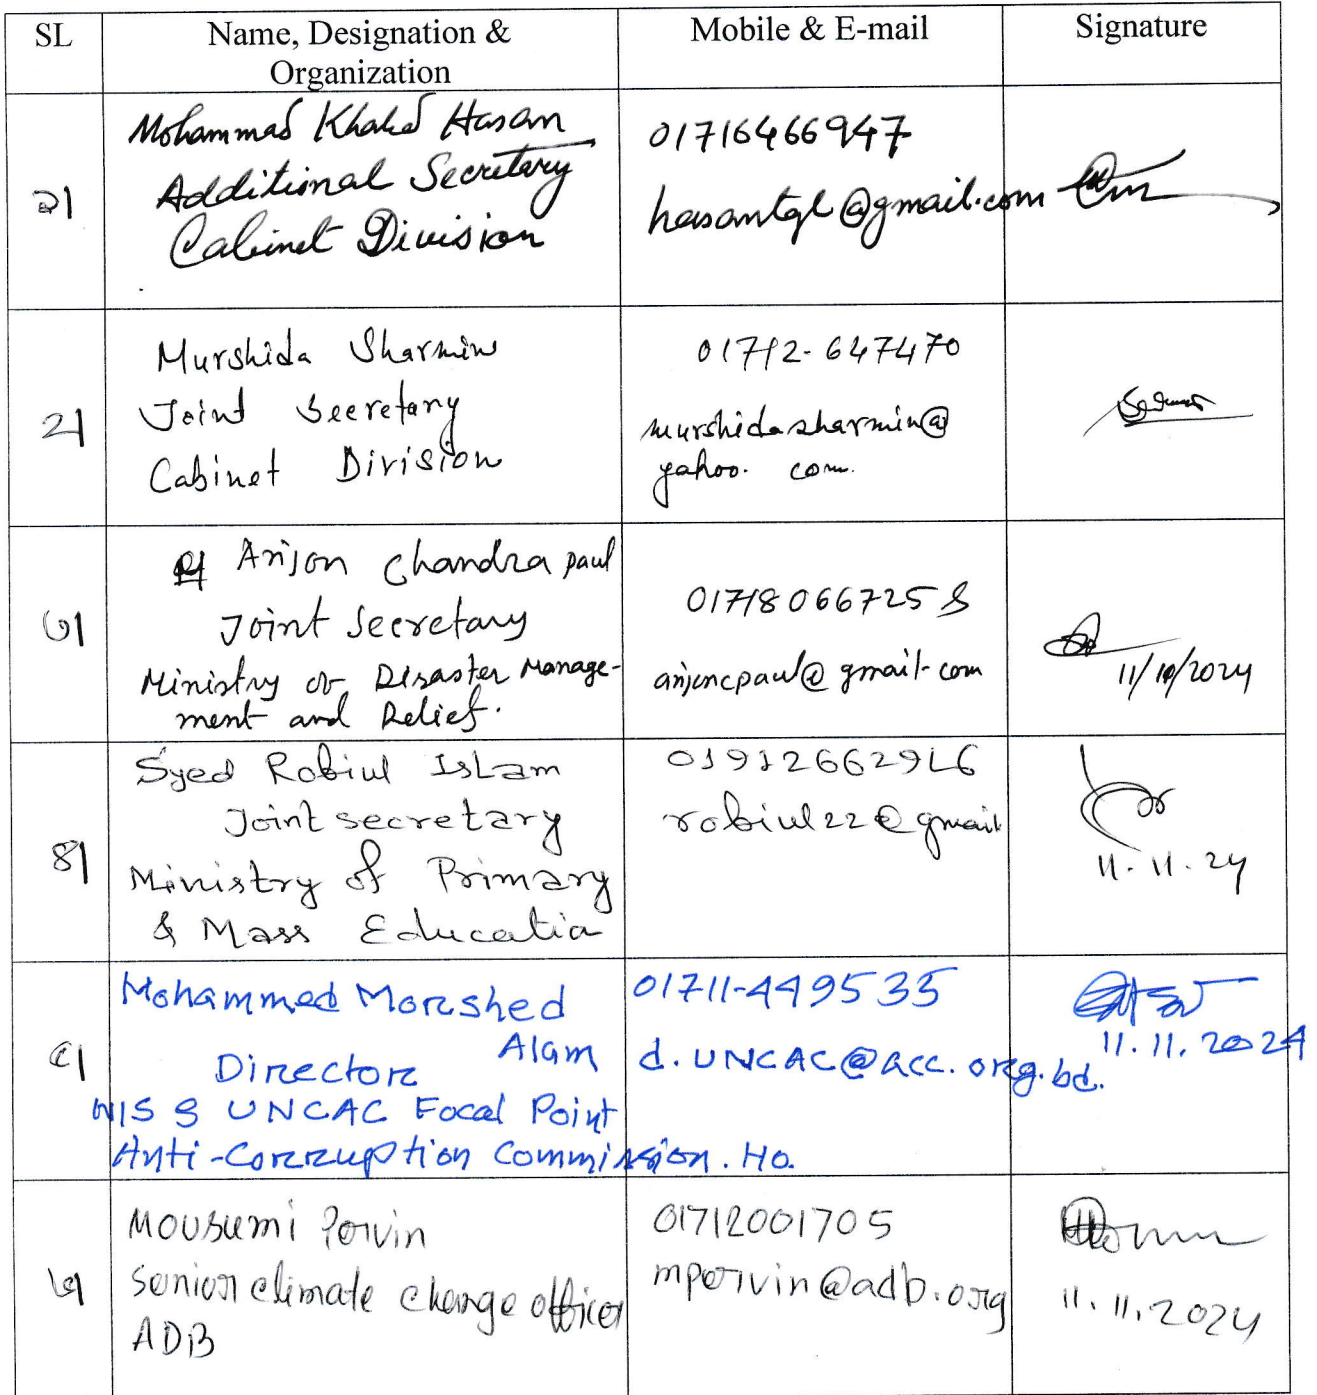 SL
Name, Designation &
Organization
Mobile & E-mail
Signature
১।
Mohammad Khaled Hasan
Additional Secretary
Cabinet Division
01716466947
hasantgl@gmail.com
২।
Murshida Sharmin
Joint Secretary
Cabinet Division
01712-647470
murshidasharmin@
yahoo. com.
৩।
Anjon Chandra Paul
Joint Secretary
Ministry of Disaster Manage-
ment and Relief.
01718066725
anjoncpaul@gmail.com
11/10/2024
৪।
Syed Robiul Islam
Joint secretary
Ministry of Primary
& Mass Educatio
01912662916
robiul22@gmail
11.11.24
৫।
Mohammed Morshed
Alam
Director
NIS & UNCAC Focal Point
Anti-Corruption Commission. HO.
01711-449535
d.UNCAC@acc.org.bd.
11.11.2024
৬।
Mousumi Pervin
Senior climate change officer
ADB
01712001705
mpervin@adb.org
11.11.2024